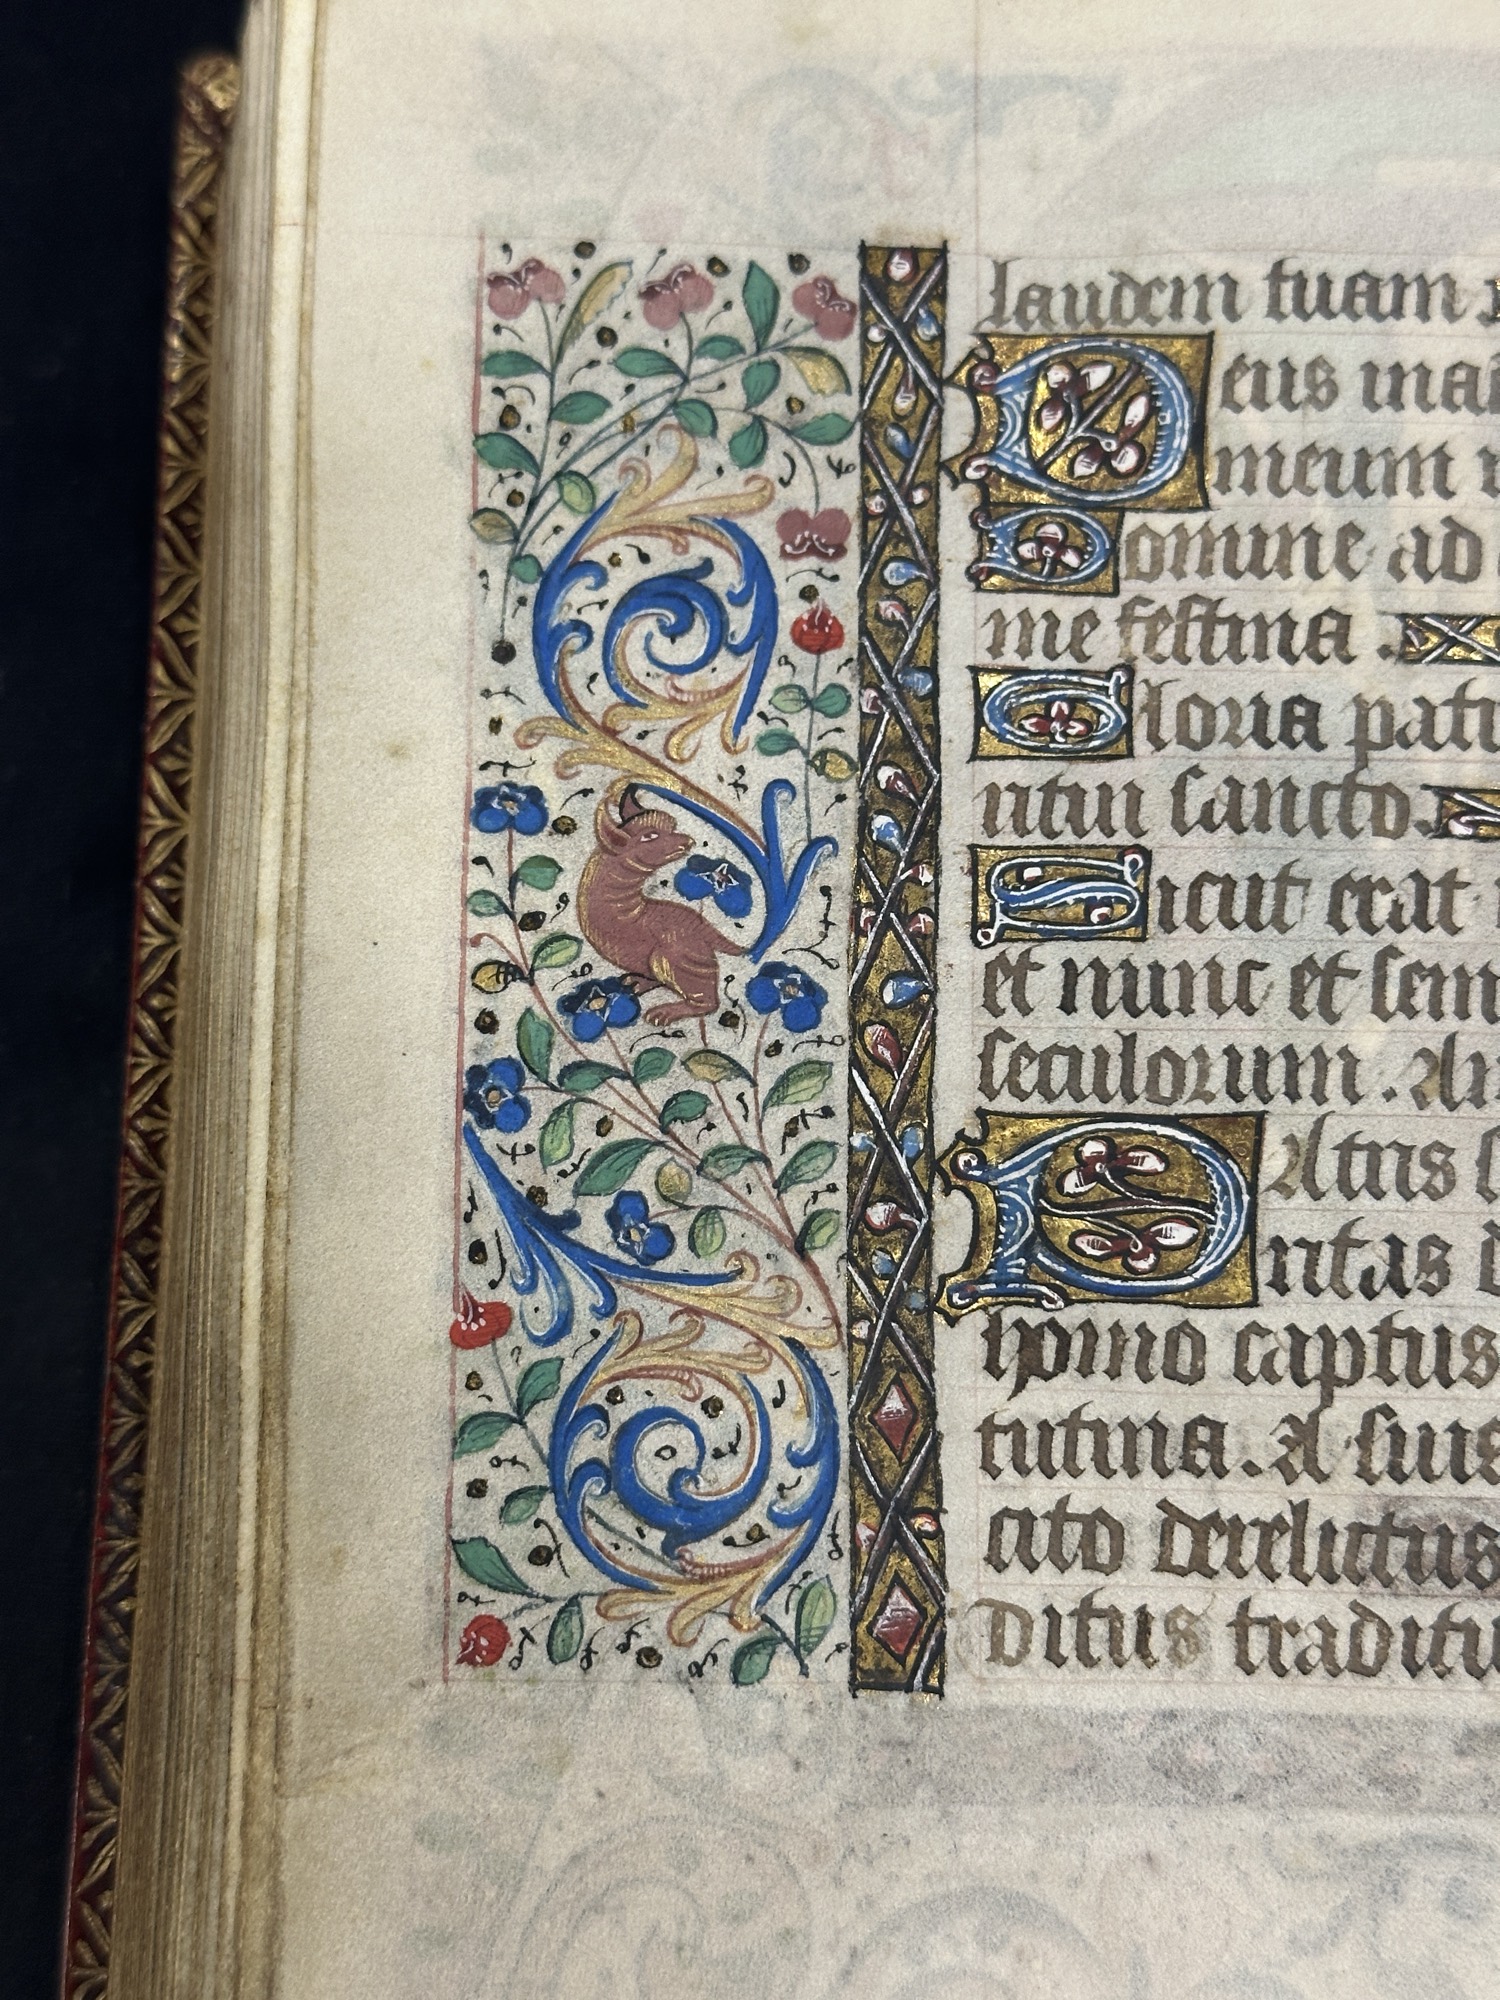 laudem tuam
Deus in a
meum
Domine ad
me festina .
Gloria patri
ritui sancto.
Sicut erat
et nunc et sem
seculorum . Am
Patris
ritas d
homo captus
tutina. A suis
cito derelictus
ditus traditu